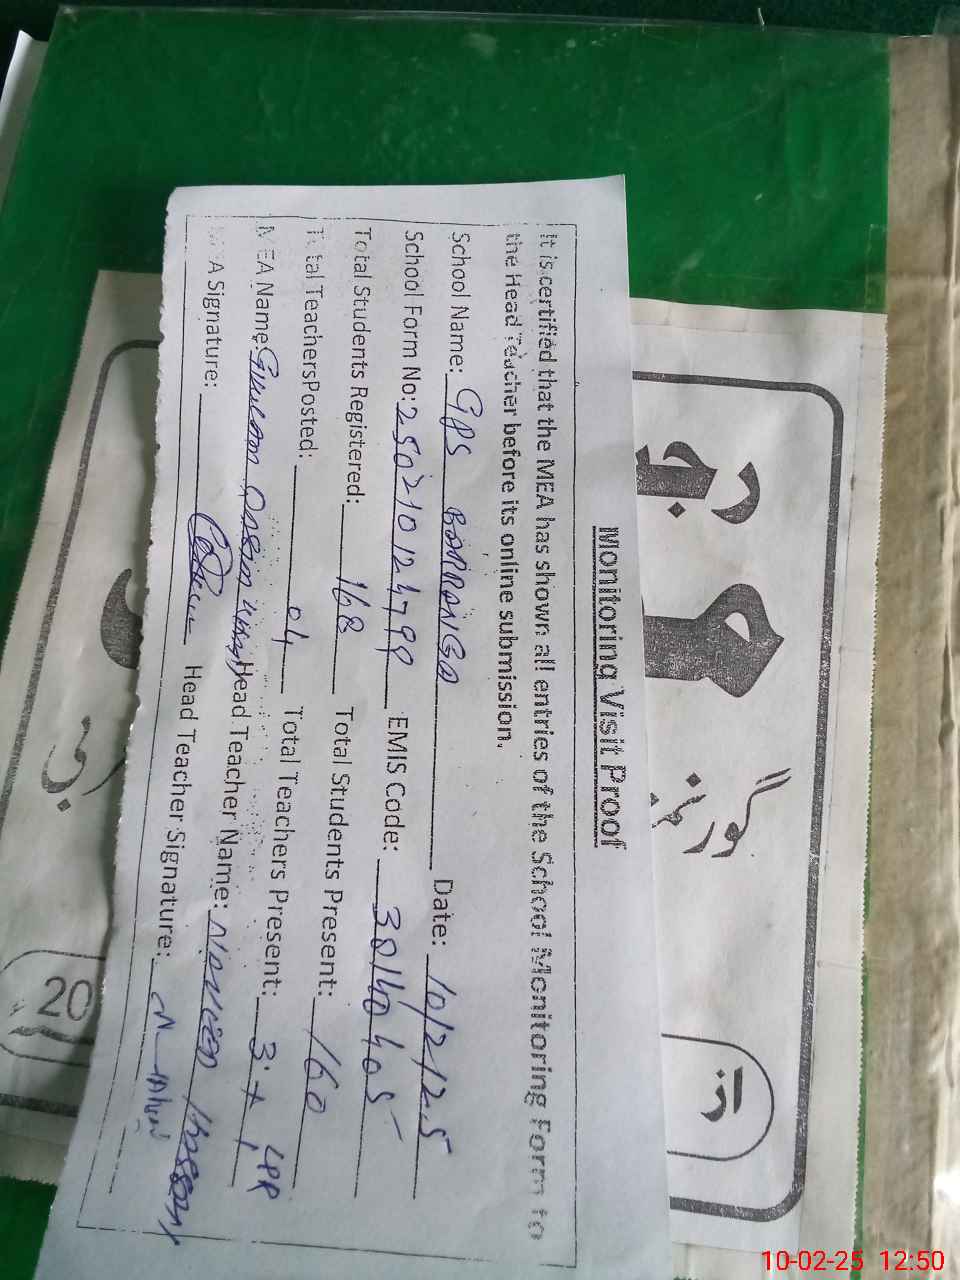 Monitoring Visit Proof
It is certified that the MEA has shown all entries of the School Monitoring Form to
the Head Teacher before its online submission.
School Name: GPS BARRANGA Date: 10/2/25
School Form No: 250210124799 EMIS Code: 38140405
Total Students Registered: 168 Total Students Present: 160
Total TeachersPosted: 04 Total Teachers Present: 3 + 1 LPR
MEA Name: Head Teacher Name:
A Signature: Head Teacher Signature:
گورنمنٹ
از
20
10-02-25 12:50